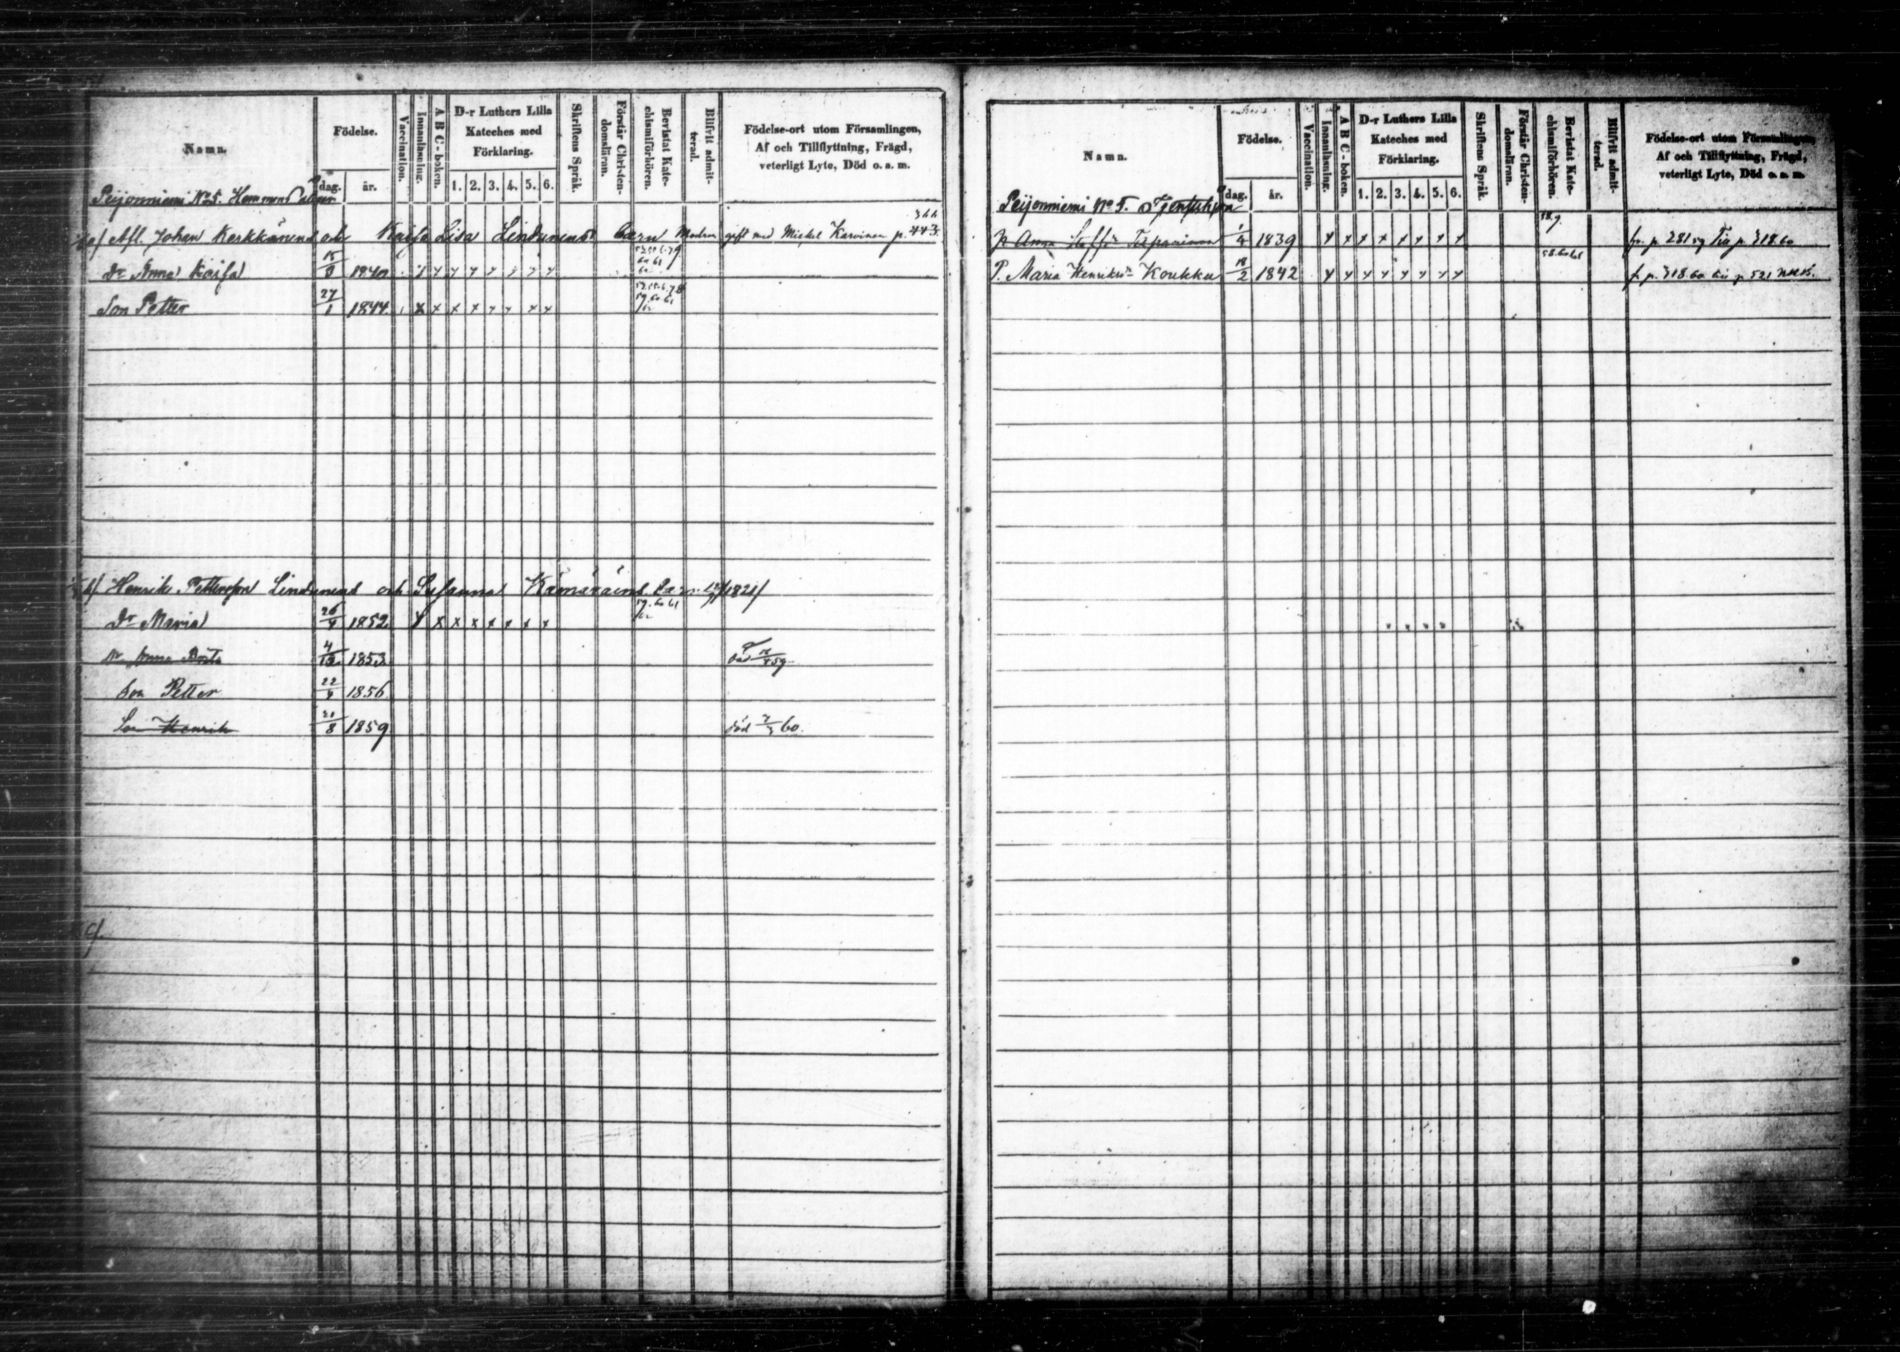 Namn. Födelse. dag. år. Vaccination. Innanläsning. A B C-boken. D-r Luthers Lilla Kateches med Förklaring. 1. 2. 3. 4. 5. 6. Skriftens Språk. Förstår Christendomsläran. Bevistat Katechismiförhören. Blifvit admitterad. Födelse-ort utom Församlingen, Af och Tillflyttning, Frägd, veterligt Lyte, Död o. a. m.
Peijonniemi No 5.
a/ Afl. Johan Kerkkänens och Kaisa Lisa Lindunens Barn Modren gift med Mickel Karvinen p.
Dr Anna Kaisa 1840 x x x x x x x
Son Petter 27/1 1844 x x x x x x x x
b/ Henrik Pettersson Lindunens och Susanna Kämäräins Barn 1821/
Dr Maria 26/9 1852 x x x x x x x x
Dr Anna 4/12 1853 död
Son Petter 22/9 1856
Son Henrik 21/8 1859 död 60.
c/.
Namn. Födelse. dag. år. Vaccination. Innanläsning. A B C-boken. D-r Luthers Lilla Kateches med Förklaring. 1. 2. 3. 4. 5. 6. Skriftens Språk. Förstår Christendomsläran. Bevistat Katechismiförhören. Blifvit admitterad. Födelse-ort utom Församlingen, Af och Tillflyttning, Frägd, veterligt Lyte, Död o. a. m.
Peijonniemi No 5.
P. Anna 1/4 1839 x x x x x x x x fr. p. 281 59 p. 318. 60
P. Maria Henriksdr Koukku 18/2 1842 x x x x x x x x 58. 60 61 fr p. 318. 60 p. 521